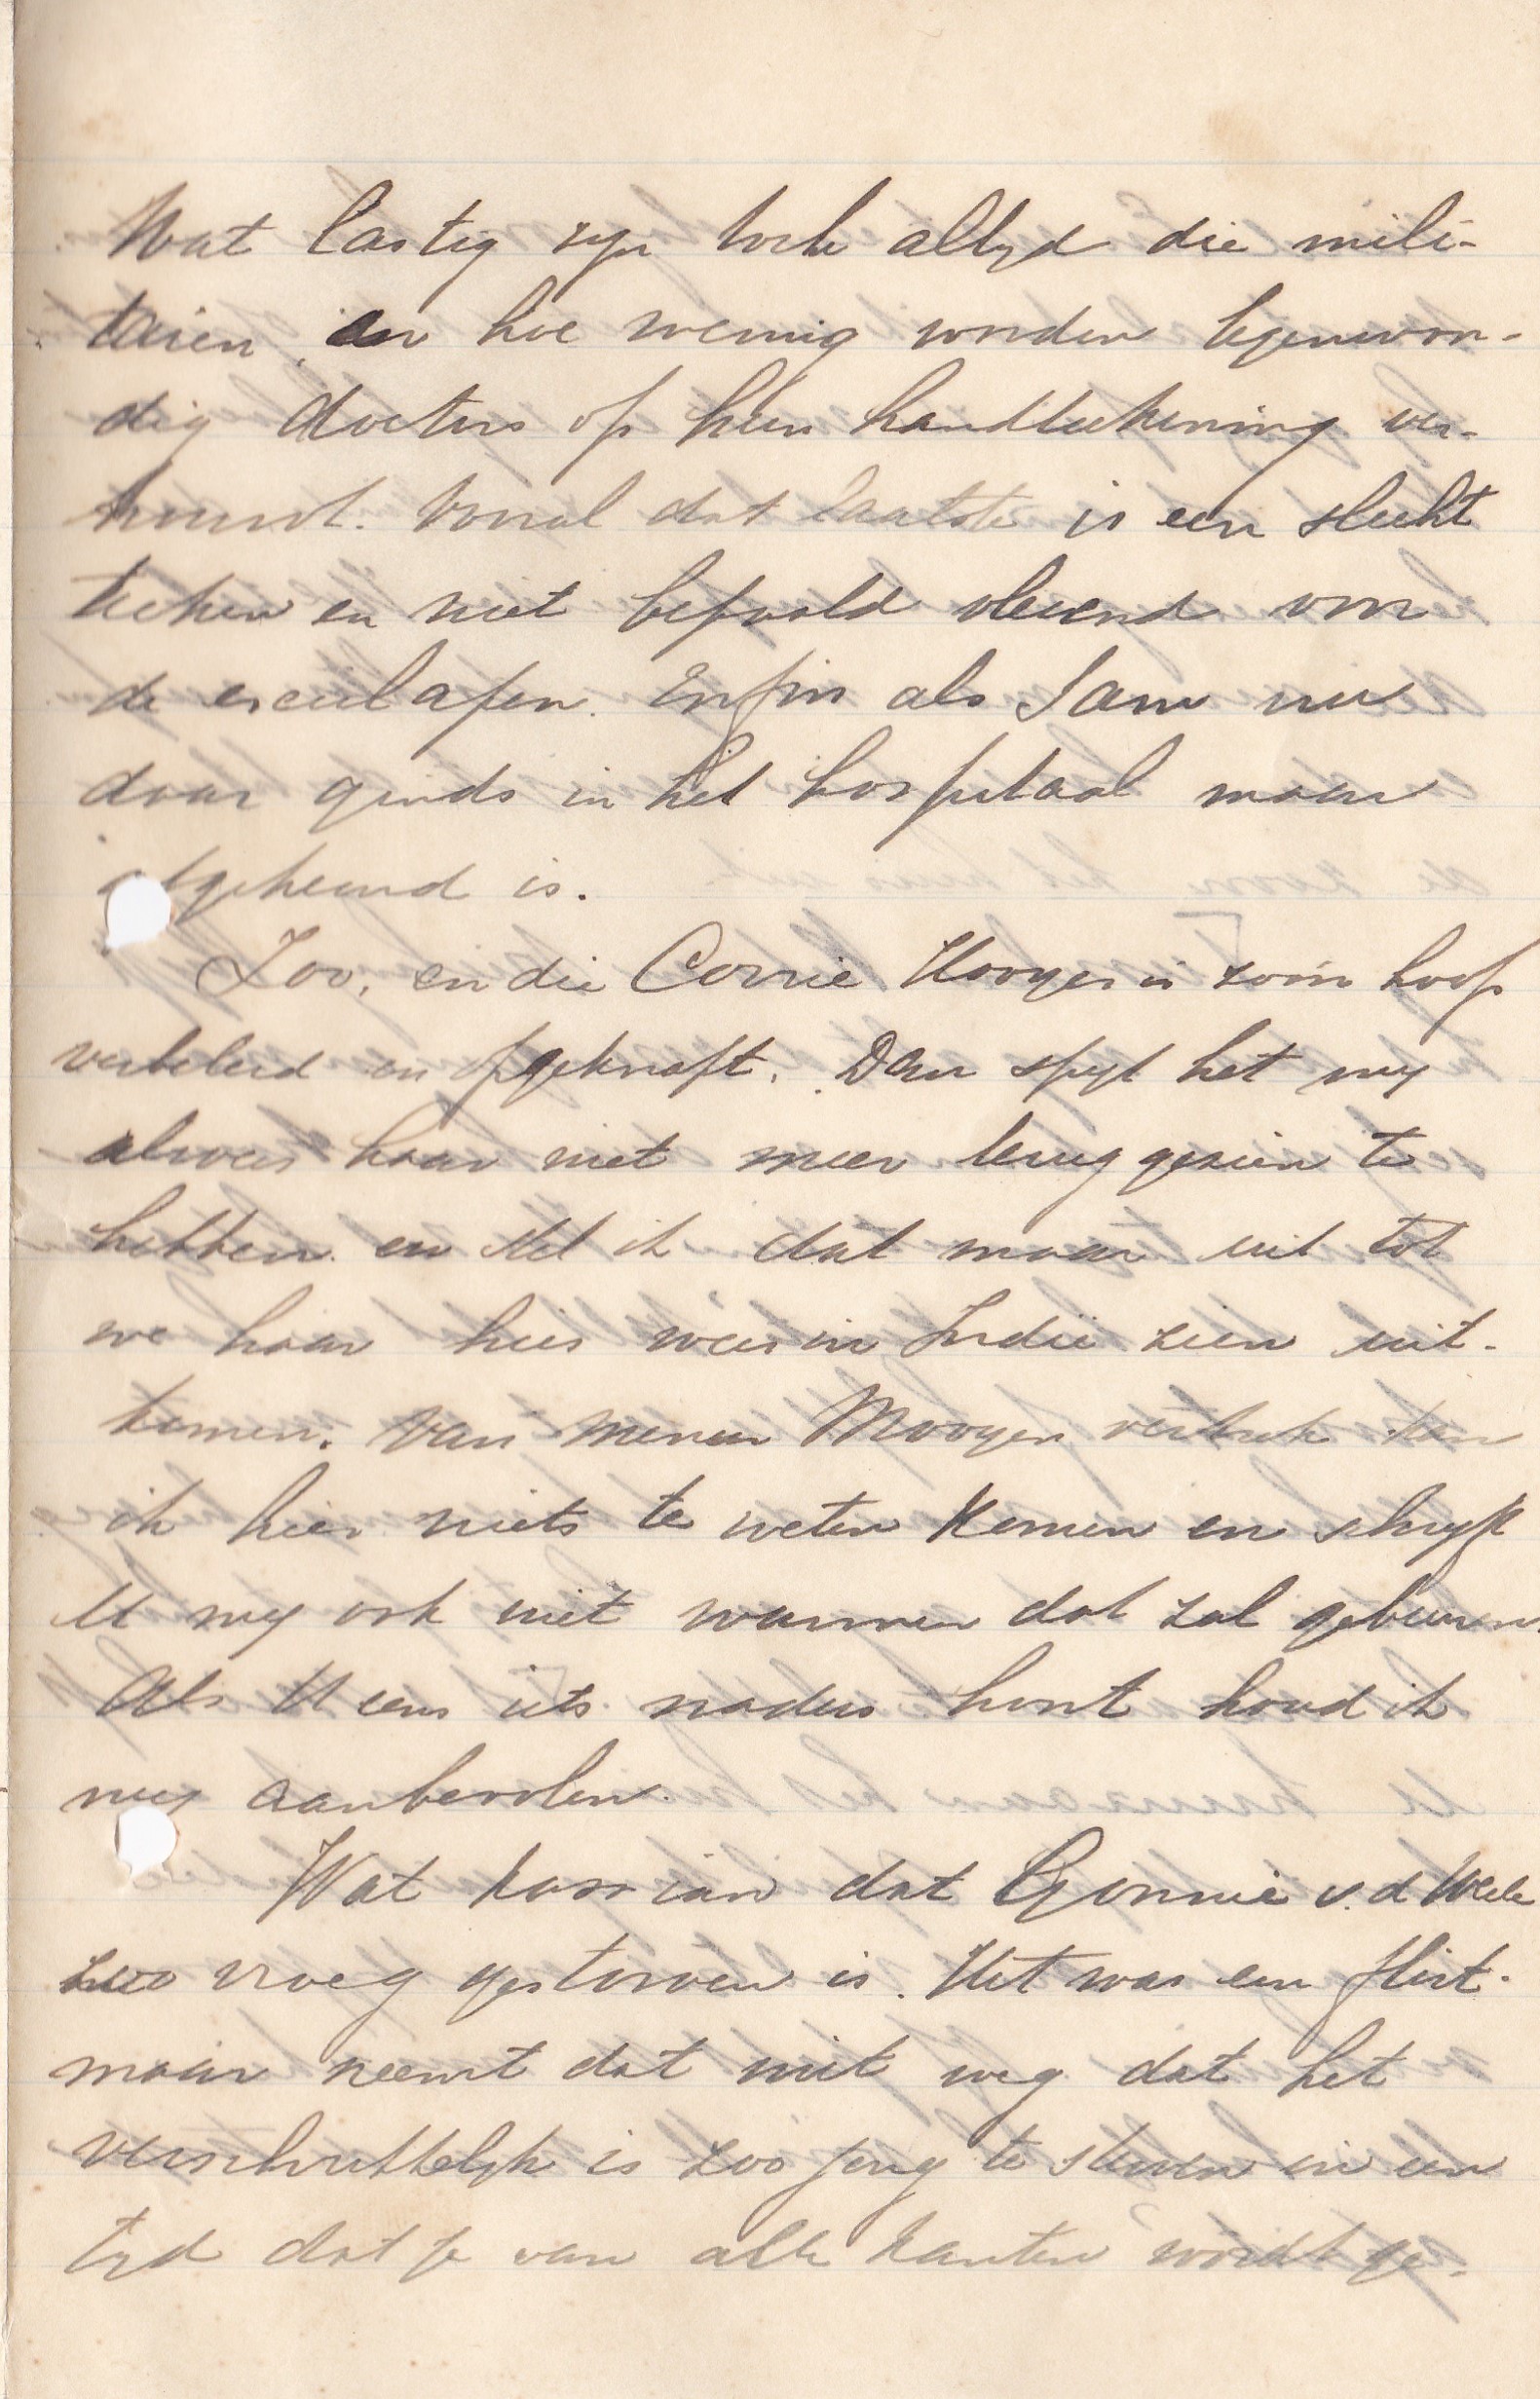 Wat lastig zijn toch altyd die mili-
tairen en hoe weinig worden tegenwoor-
dig doctors op hun handteekening ver-
trouwd. Vooral dat laatste is een slecht
teeken en niet bepaald vleiend voor
de esculapen. Enfin als Sam nu
daar ginds in het hospitaal maar
afgekeurd is.
Zoo, en die Corrie Hooyer is zoo'n hoop
verbeterd en opgeknapt. Dan spyt het my
alweer haar niet meer teruggezien te
hebben en stel ik dat maar uit tot
we haar hier weer in Indië zien uit-
komen. Van meneer Mooyen vertrek kan
ik hier niets te weten komen en schryft
U my ook niet wanneer dat zal gebeuren.
Als U eens iets naders hoort houd ik
my aanbevolen.
Wat kassian dat Gonnie v.d Weele
zoo vroeg gestorven is. Het was een flirt-
maar neemt dat niet weg dat het
verschrikkelyk is zoo jong te sterven in een
tyd dat je van alle kanten wordt ge-